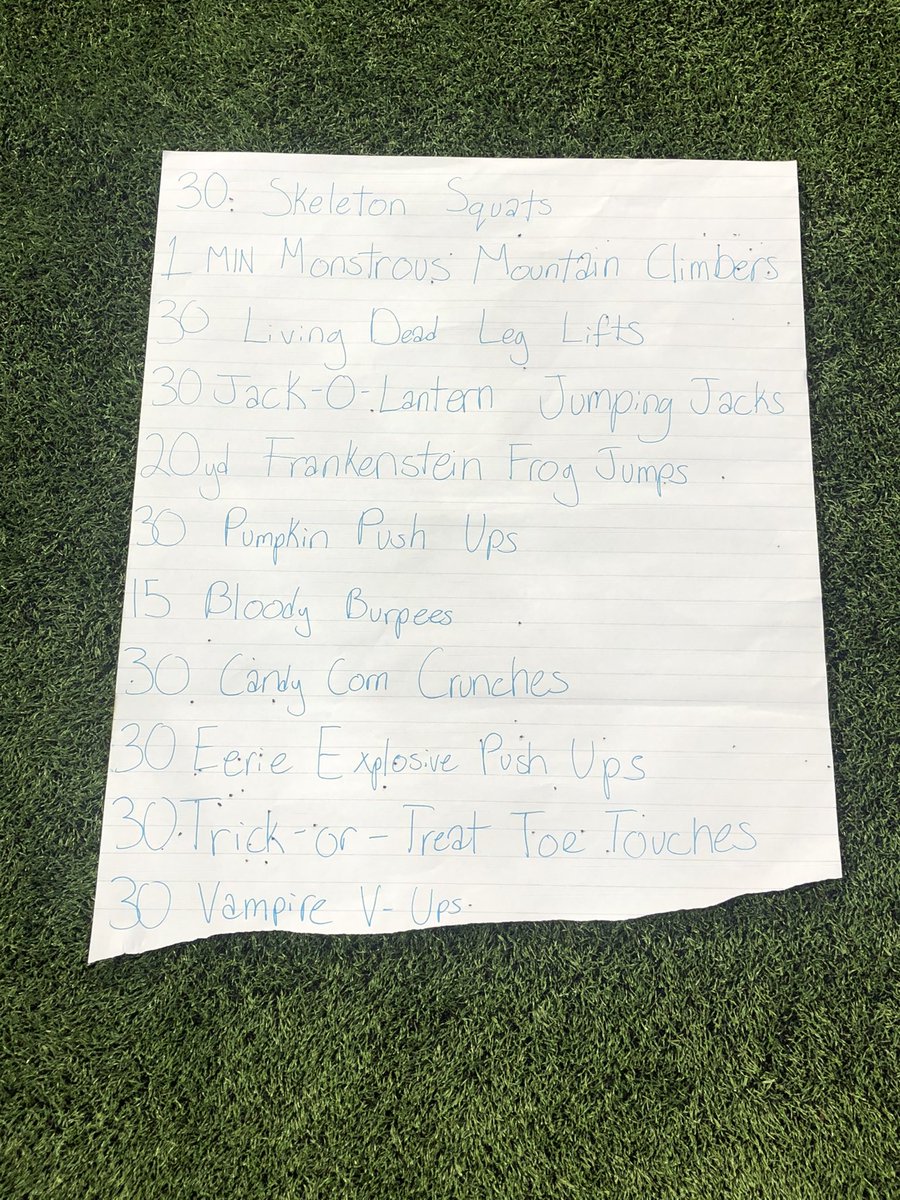 30 Skeleton Squats
1 MIN Monstrous Mountain Climbers
30 Living Dead Leg Lifts
30 Jack-O-Lantern Jumping Jacks
20yd Frankenstein Frog Jumps
30 Pumpkin Push Ups
15 Bloody Burpees
30 Candy Corn Crunches
30 Eerie Explosive Push Ups
30 Trick-or-Treat Toe Touches
30 Vampire V-Ups